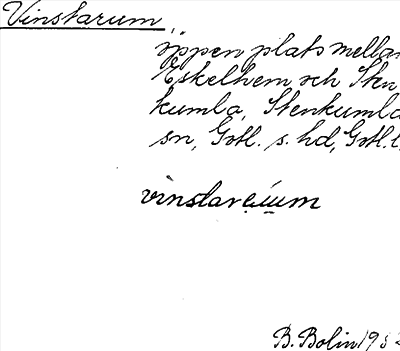 Vinstarum,
öppen plats mellan
Eskelhem och Sten
kumla, Stenkumla
sn, Gotl. s. hd, Gotl. l.
B. Bolin 19